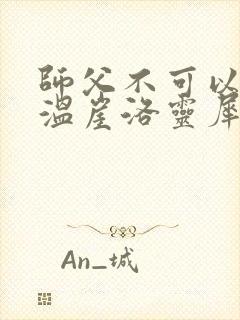 師父不可以
溫崖洛靈犀
An_城